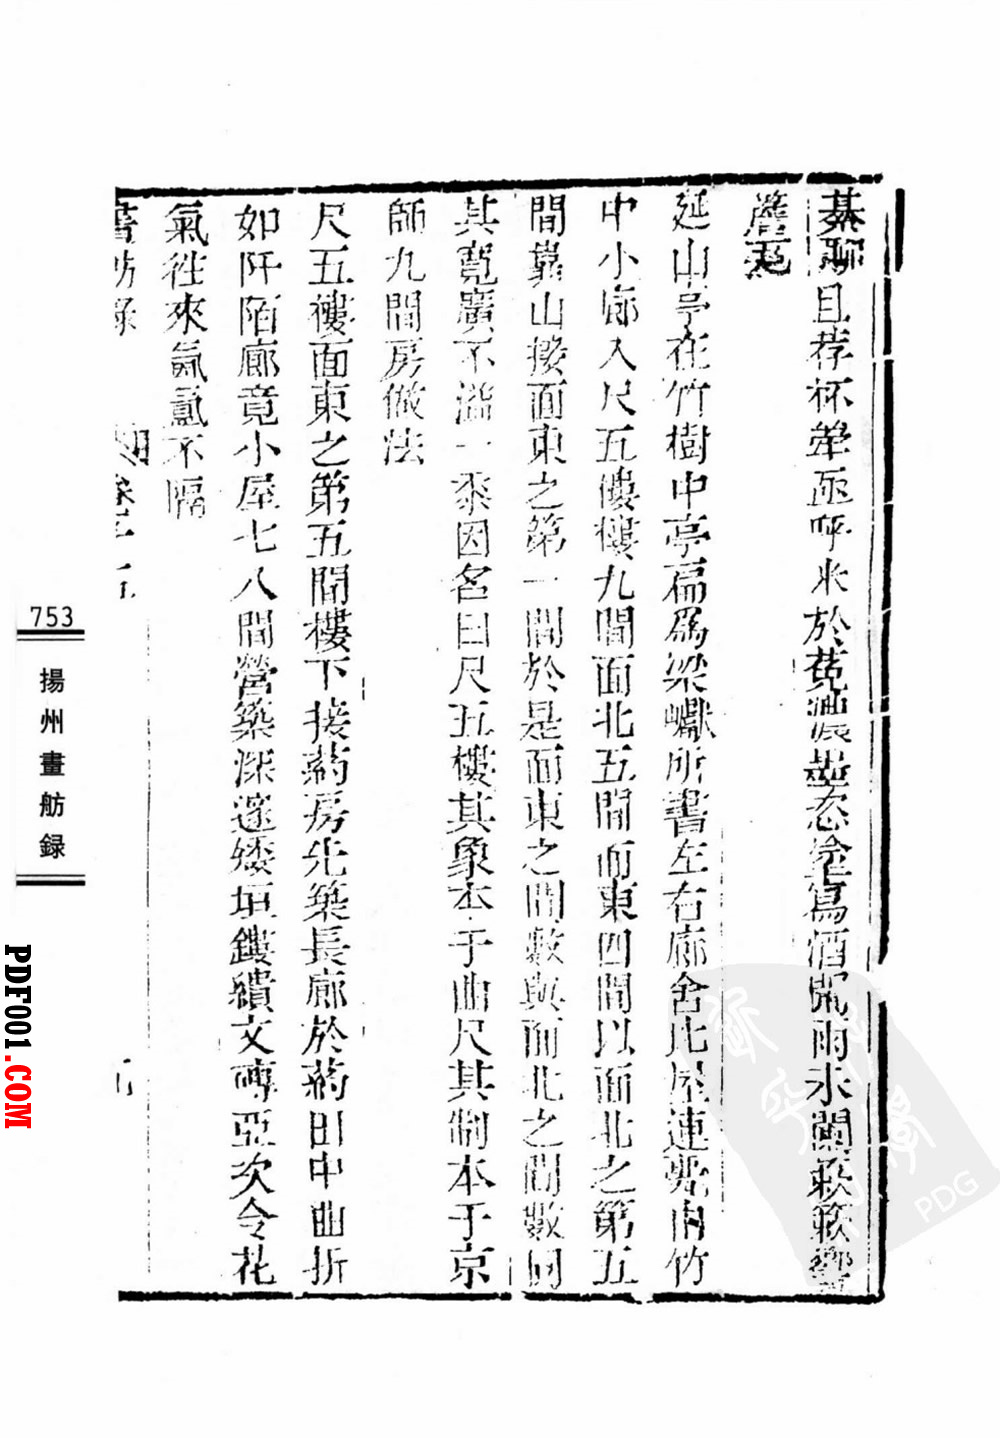 綦聊且荐杯犖亟呼米於菟濃墨恣塗寫酒闌雨水闌歌
簷瓦
延山亭在竹樹中亭扁爲梁巘所書左右廊舍比屋連甍由竹
中小廊入尺五樓樓九間面北五間面東四間以面北之第五
間靠山接面東之第一間於是面東之間數與面北之間數同
其寬廣不溢一黍因名曰尺五樓其象本于曲尺其制本于京
師九間房做法
尺五樓面東之第五間樓下接藥房先築長廊於藥田中曲折
如阡陌廊竟小屋七八間營築深邃矮垣鏤繢文磚亞次令花
氣往來氤氳不隔
舫錄
卷十五
753
揚州畫舫録
PDF001.COM
PDG